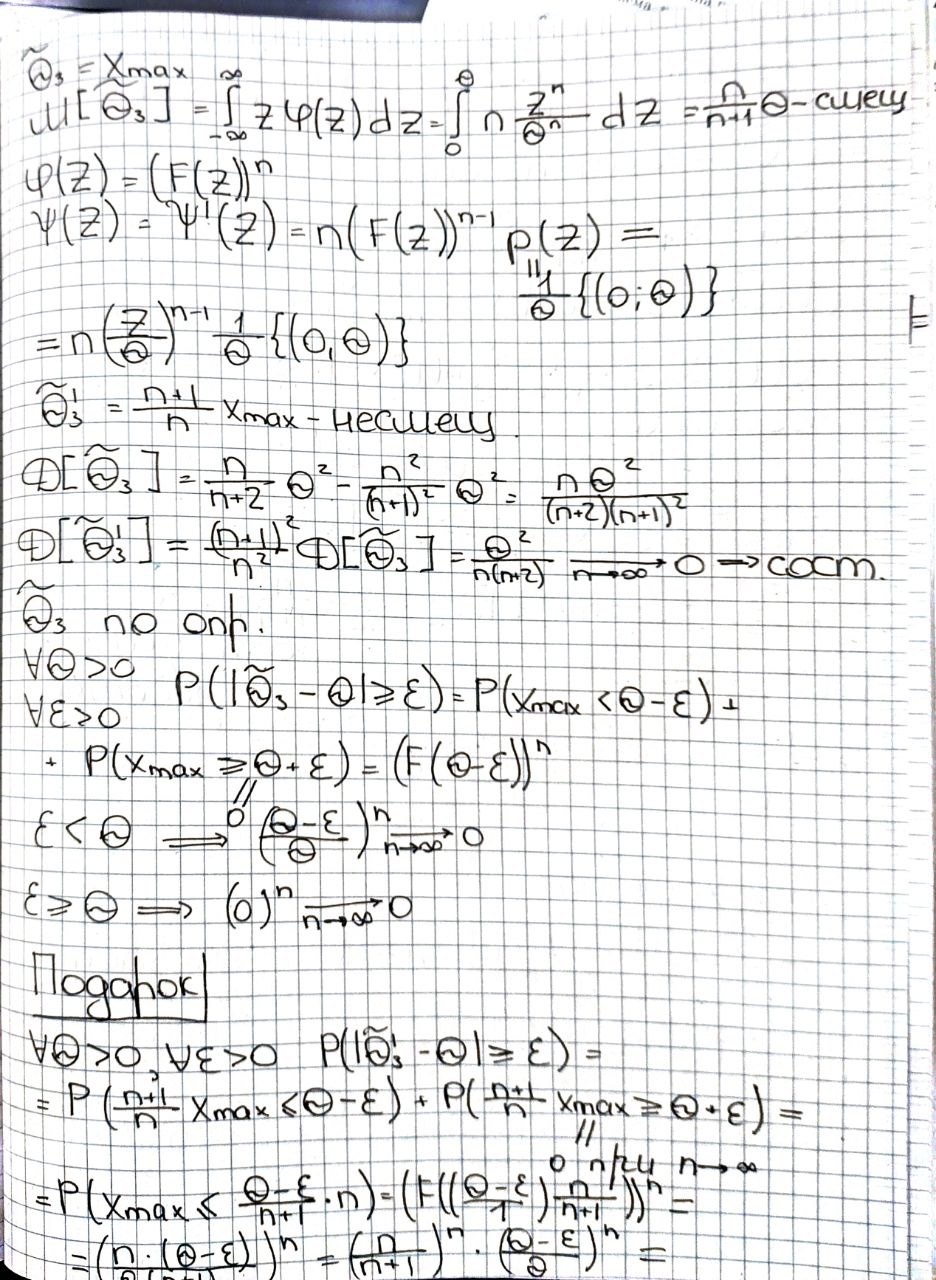 Θ̃₃ = Xmax
M[Θ̃₃] = ∫_{-∞}^{∞} z φ(z) dz = ∫_0^Θ n zⁿ/Θⁿ dz = n/(n+1) Θ - смещ
φ(z) = (F(z))ⁿ
ψ(z) = ψ'(z) = n(F(z))ⁿ⁻¹ p(z) =
" 1/Θ {(0;Θ)}
= n(z/Θ)ⁿ⁻¹ 1/Θ {(0,Θ)}
Θ̃₃' = (n+1)/n Xmax - несмещ.
D[Θ̃₃] = n/(n+2) Θ² - n²/(n+1)² Θ² = nΘ²/((n+2)(n+1)²)
D[Θ̃₃'] = (n+1)²/n² D[Θ̃₃] = Θ²/(n(n+2)) →_{n→∞} 0 → сост.
Θ̃₃ по опр.
∀Θ>0 P(|Θ̃₃ - Θ| ≥ ε) = P(Xmax < Θ-ε) +
∀ε>0
+ P(Xmax ≥ Θ+ε) = (F(Θ-ε))ⁿ
" 0
ε < Θ ⟹ ((Θ-ε)/Θ)ⁿ →_{n→∞} 0
ε ≥ Θ ⟹ (0)ⁿ →_{n→∞} 0
Подарок
∀Θ<0, ∀ε<0 P(|Θ̃₃' - Θ| ≥ ε) =
= P((n+1)/n Xmax ≤ Θ-ε) + P((n+1)/n Xmax ≥ Θ+ε) =
" 0 при n→∞
= P(Xmax ≤ (Θ-ε)/(n+1) · n) = (F((Θ-ε)/1) n/(n+1)))ⁿ =
= (n·(Θ-ε)/Θ(n+1))ⁿ = (n/(n+1))ⁿ · ((Θ-ε)/Θ)ⁿ =